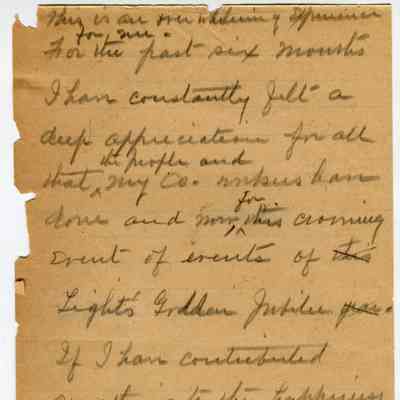 This is an overwhelming experience
for me.
For the past six months
I have constantly felt a
deep appreciation for all
the people and
that ^ my Co-workers have
for
done and now ^ this crowning
event of events of this
Light's Golden Jubilee year.
If I have contributed
to the happiness